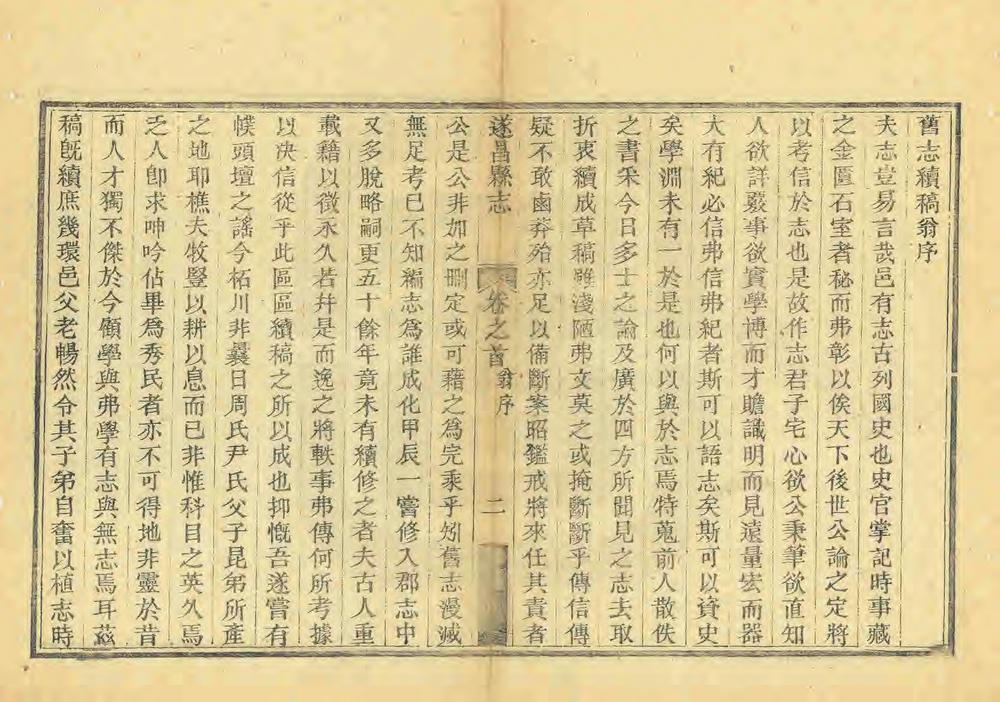 舊志續稿翁序
夫志豈易言哉邑有志古列國史也史官掌記時事藏
之金匱石室者秘而弗彰以俟天下後世公論之定將
以考信於志也是故作志君子宅心欲公秉筆欲直知
人欲詳覈事欲實學博而才贍識明而見遠量宏而器
大有紀必信弗信弗紀者斯可以語志矣斯可以資史
矣學淵未有一於是也何以與於志焉特蒐前人散佚
之書采今日多士之論及廣於四方所聞見之志去取
折衷續成草稿雖淺陋弗文莫之或掩斷斷乎傳信傳
疑不敢鹵莽殆亦足以備斷案昭鑑戒將來任其責者
遂昌縣志
卷之首
翁序
二
公是公非加之刪定或可藉之為完乘乎矧舊志漫滅
無足考已不知編志為誰成化甲辰一嘗修入郡志中
又多脫略嗣更五十餘年竟未有續修之者夫古人重
載藉以徵永久若幷是而逸之將軼事弗傳何所考據
以決信從乎此區區續稿之所以成也抑慨吾遂嘗有
幞頭壇之謠今柘川非曩日周氏尹氏父子昆弟所產
之地耶樵夫牧豎以耕以息而已非惟科目之英久焉
乏人卽求呻吟佔畢爲秀民者亦不可得地非靈於昔
而人才獨不傑於今顧學與弗學有志與無志焉耳茲
稿旣續庶幾環邑父老暢然令其子弟自奮以植志時